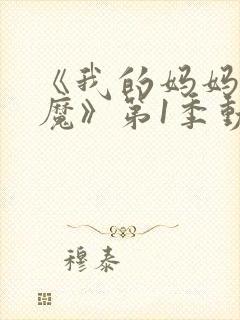 《我的妈妈
魔》第1季动
穆泰